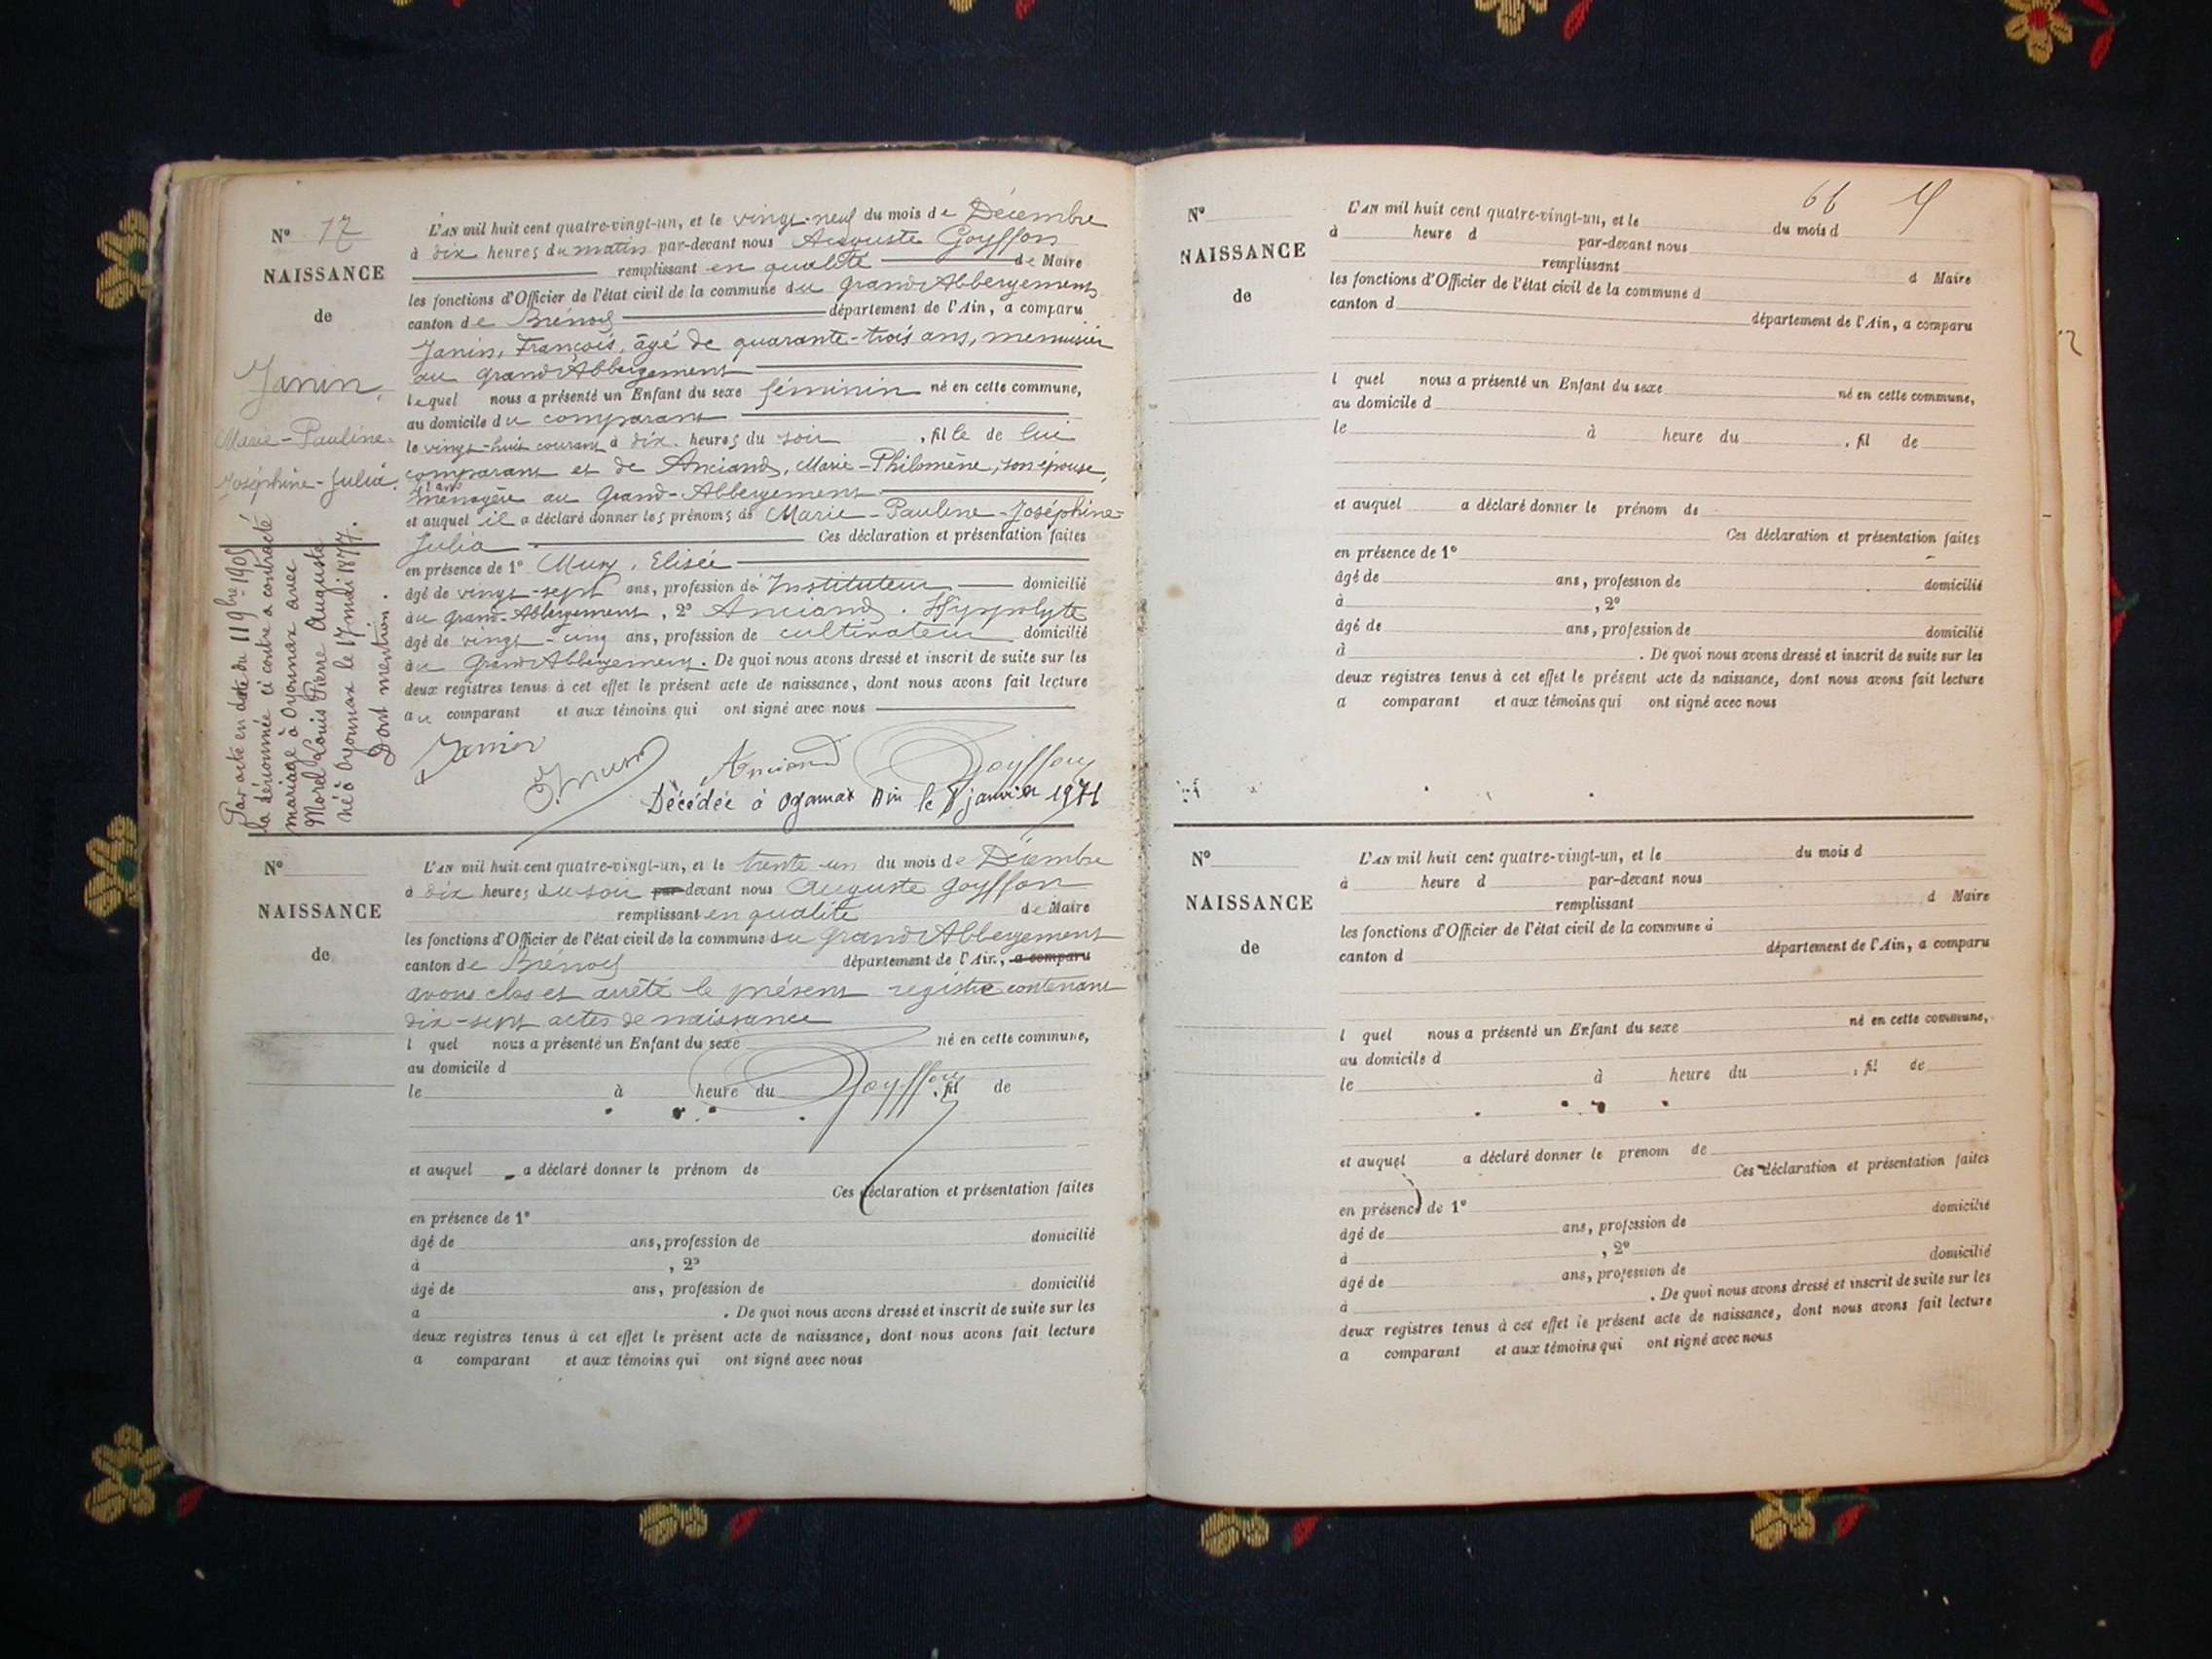 N° 17
NAISSANCE
de
Janin,
Marie-Pauline-
Joséphine-Julia.
L'AN mil huit cent quatre-vingt-un, et le vingt-neuf du mois de Décembre
à dix heures du matin par-devant nous Auguste Goyffon
remplissant en qualité de Maire
les fonctions d'Officier de l'état civil de la commune du Grand Abbergement
canton de Brénod département de l'Ain, a comparu
Janin, François, âgé de quarante-trois ans, menuisier
au Grand Abbergement
lequel nous a présenté un Enfant du sexe féminin né en cette commune,
au domicile du comparant
le vingt-huit courant à dix heures du soir, fille de lui
comparant et de Anciand, Marie-Philomène, son épouse,
ménagère au Grand-Abbergement
et auquel il a déclaré donner les prénoms de Marie-Pauline-Joséphine-
Julia Ces déclaration et présentation faites
en présence de 1° Elisée
âgé de vingt-sept ans, profession de Instituteur domicilié
au Grand-Abbergement, 2° Anciand, Hyppolyte
âgé de vingt-cinq ans, profession de cultivateur domicilié
au Grand Abbergement. De quoi nous avons dressé et inscrit de suite sur les
deux registres tenus à cet effet le présent acte de naissance, dont nous avons fait lecture
au comparant et aux témoins qui ont signé avec nous
Janin
Anciand Goyffon
Décédée à Oyonnax Ain le janvier 1971
Par acte en date du 11 9bre 1905
la dénommée ci contre a contracté
mariage à Oyonnax avec
Morel Louis Pierre Auguste
né à Oyonnax le 17 mai 1877.
Dont mention.
N°
NAISSANCE
de
L'AN mil huit cent quatre-vingt-un, et le trente-un du mois de Décembre
à dix heures du soir par-devant nous Auguste Goyffon
remplissant en qualité de Maire
les fonctions d'Officier de l'état civil de la commune du Grand Abbergement
canton de Brénod département de l'Ain, a comparu
avons clos et arrêté le présent registre contenant
dix-sept actes de naissance
l quel nous a présenté un Enfant du sexe né en cette commune,
au domicile d
le à heure du , fil de
Goyffon
et auquel a déclaré donner le prénom de
Ces déclaration et présentation faites
en présence de 1°
âgé de ans, profession de domicilié
à , 2°
âgé de ans, profession de domicilié
à . De quoi nous avons dressé et inscrit de suite sur les
deux registres tenus à cet effet le présent acte de naissance, dont nous avons fait lecture
a comparant et aux témoins qui ont signé avec nous
66
N°
NAISSANCE
de
L'AN mil huit cent quatre-vingt-un, et le du mois d
à heure d par-devant nous
remplissant d Maire
les fonctions d'Officier de l'état civil de la commune d
canton d département de l'Ain, a comparu
l quel nous a présenté un Enfant du sexe né en cette commune,
au domicile d
le à heure du , fil de
et auquel a déclaré donner le prénom de
Ces déclaration et présentation faites
en présence de 1°
âgé de ans, profession de domicilié
à , 2°
âgé de ans, profession de domicilié
à . De quoi nous avons dressé et inscrit de suite sur les
deux registres tenus à cet effet le présent acte de naissance, dont nous avons fait lecture
a comparant et aux témoins qui ont signé avec nous
N°
NAISSANCE
de
L'AN mil huit cent quatre-vingt-un, et le du mois d
à heure d par-devant nous
remplissant d Maire
les fonctions d'Officier de l'état civil de la commune d
canton d département de l'Ain, a comparu
l quel nous a présenté un Enfant du sexe né en cette commune,
au domicile d
le à heure du , fil de
et auquel a déclaré donner le prénom de
Ces déclaration et présentation faites
en présence de 1°
âgé de ans, profession de domicilié
à , 2°
âgé de ans, profession de domicilié
à . De quoi nous avons dressé et inscrit de suite sur les
deux registres tenus à cet effet le présent acte de naissance, dont nous avons fait lecture
a comparant et aux témoins qui ont signé avec nous